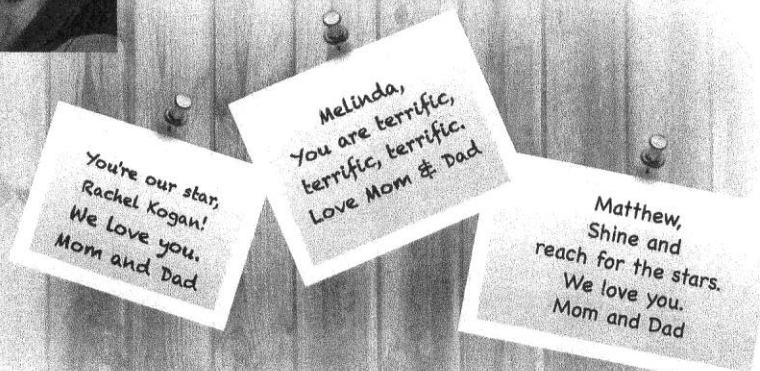 You're our star,
Rachel Kogan!
We love you.
Mom and Dad
Melinda,
You are terrific,
terrific, terrific.
Love Mom & Dad
Matthew,
Shine and
reach for the stars.
We love you.
Mom and Dad